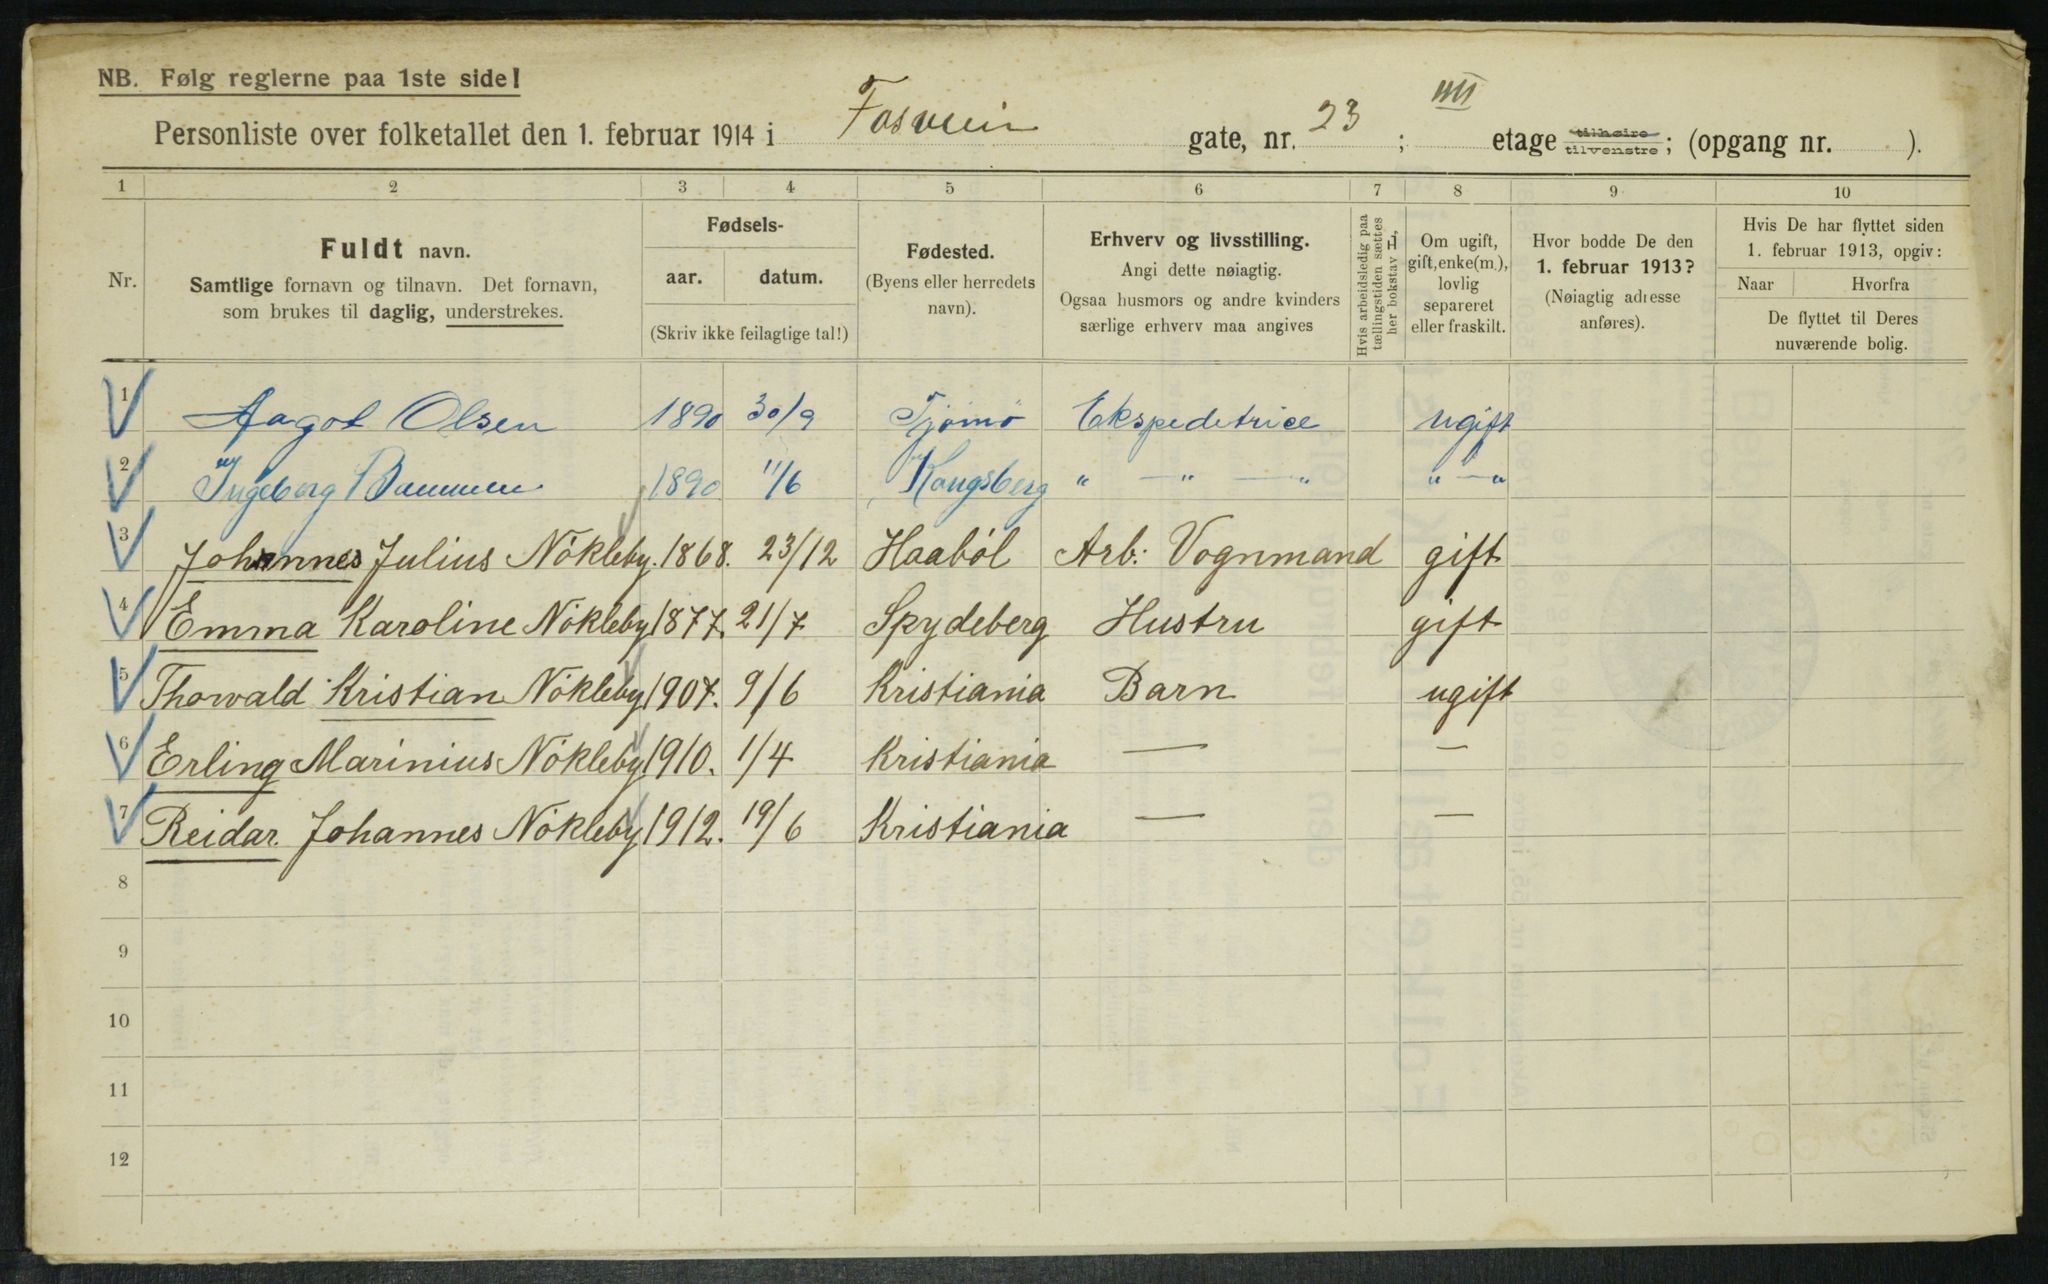 NB. Følg reglerne paa 1ste side!
Personliste over folketallet den 1. februar 1914 i Fosveien gate, nr. 23; IIII etage tilhøire tilvenstre; (opgang nr. ).
1 2 3 4 5 6 7 8 9 10
Nr.
Fuldt navn.
Samtlige fornavn og tilnavn. Det fornavn,
som brukes til daglig, understrekes.
Fødsels-
aar. datum.
(Skriv ikke feilagtige tal!)
Fødested.
(Byens eller herredets
navn).
Erhverv og livsstilling.
Angi dette nøiagtig.
Ogsaa husmors og andre kvinders
særlige erhverv maa angives
Hvis arbeidsledig paa
tællingstiden sættes
her bokstav L,
Om ugift,
gift, enke(m.),
lovlig
separeret
eller fraskilt.
Hvor bodde De den
1. februar 1913?
(Nøiagtig adresse
anføres).
Hvis De har flyttet siden
1. februar 1913, opgiv:
Naar Hvorfra
De flyttet til Deres
nuværende bolig.
1 Aagot Olsen 1890 30/9 Tjømø Ekspeditrice ugift
2 Ingeborg 1890 11/6 Kongsberg " — " — " " — "
3 Johannes Julius Nökleby. 1868. 23/12 Haaböl Arb: Vognmand gift
4 Emma Karoline Nökleby 1877. 21/7 Spydeberg Hustru gift
5 Thorvald Kristian Nökleby 1907. 9/6 Kristiania Barn ugift
6 Erling Marinius Nökleby 1910. 1/4 Kristiania — —
7 Reidar. Johannes Nökleby 1912. 19/6 Kristiania — —
8
9
10
11
12